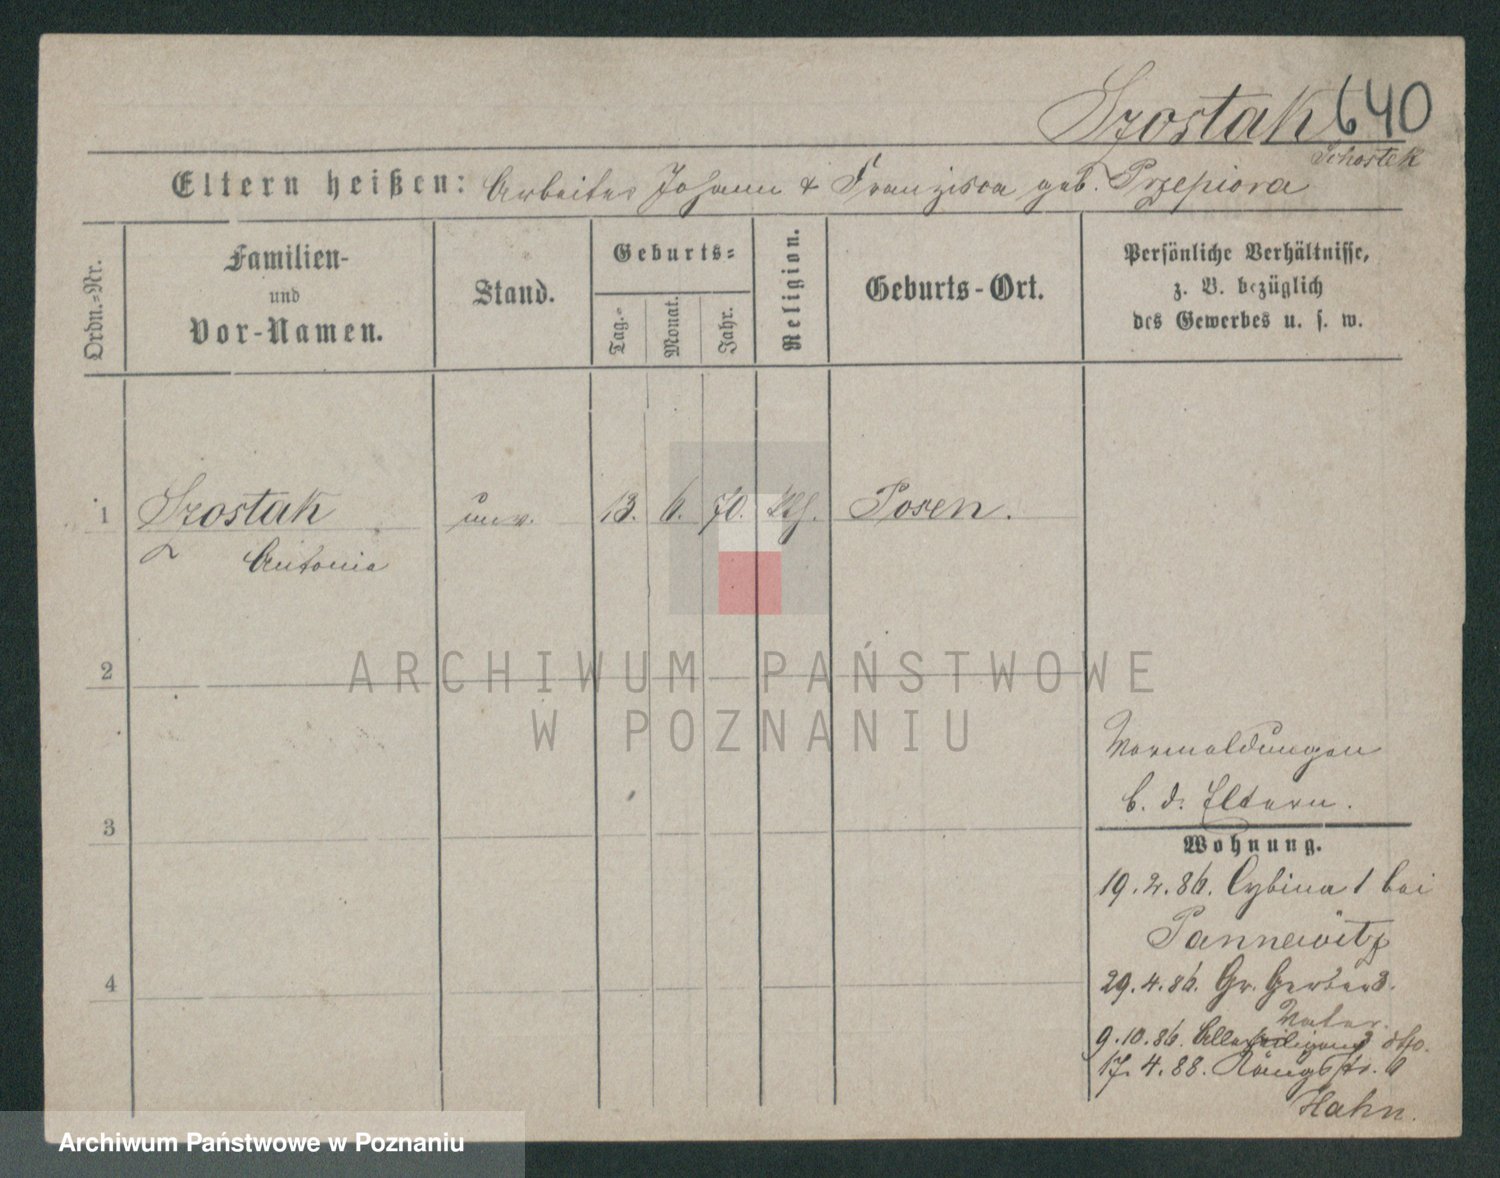 Szostak 640
Schostek
Eltern heißen: Arbeiter Johann & Franziska geb. Przepiora
Ordn.-Nr.
Familien-
und
Vor-Namen.
Stand.
Geburts-
Tag.
Monat.
Jahr.
Religion.
Geburts-Ort.
Persönliche Verhältnisse,
z. B. bezüglich
des Gewerbes u. s. w.
1 Szostak unv. 13. 6. 70. kth. Posen.
Antonie
2
ARCHIWUM PAŃSTWOWE
W POZNANIU
Vormeldungen
b. d. Eltern.
3
Wohnung.
19.2.86. Cybina 1 bei
Pannewitz
4
29.4.86. Gr. Gerber 3.
Vater.
9.10.86. Allerheiligen 3 dto.
17.4.88. Königstr. 6
Hahn.
Archiwum Państwowe w Poznaniu